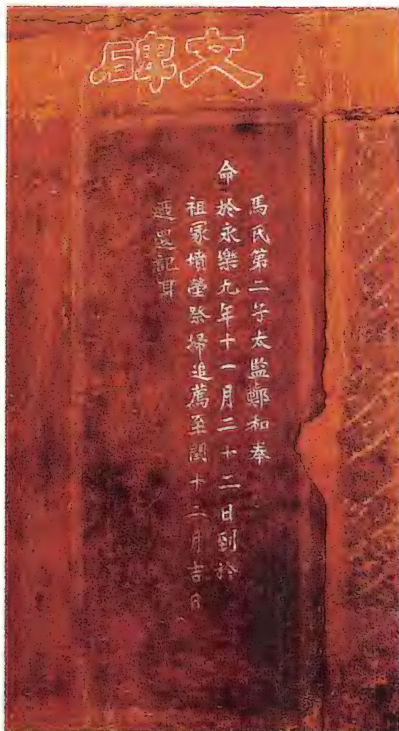 碑文
馬氏第二子太監鄭和奉
命於永樂九年十一月二十二日到於
祖冢墳塋祭掃追薦至閏十二月吉日
乃還記耳